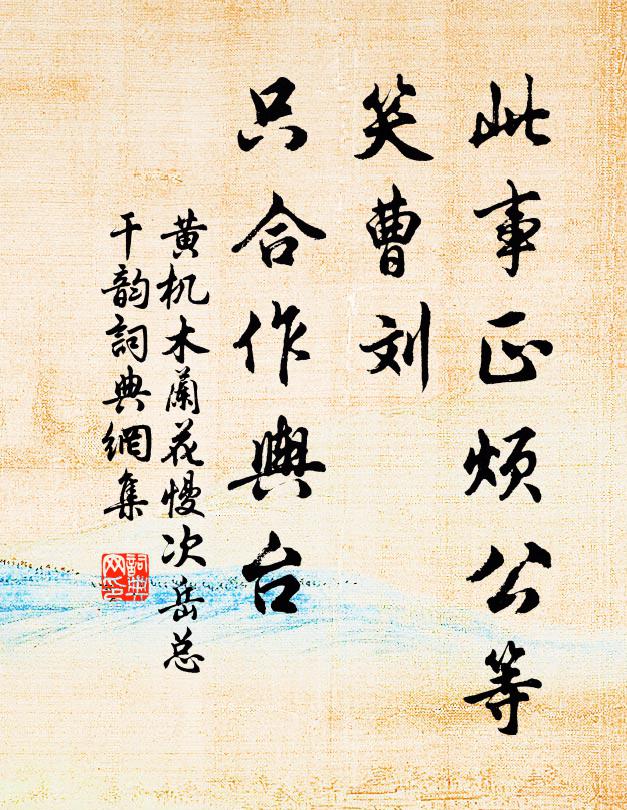 此事正烦公等
笑曹刘
只合作舆台
黄机木蘭花慢次岳总
干韵詞典網集
詞典网印